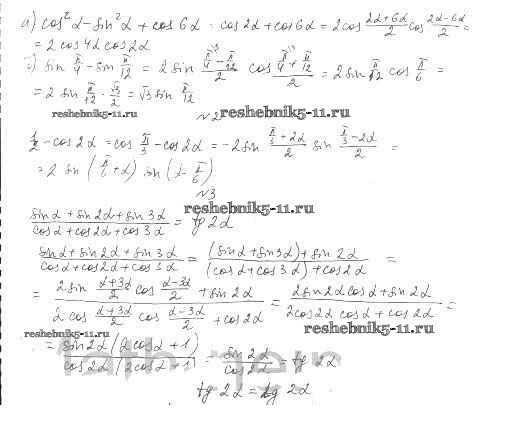 а) cos²α - sin²α + cos 6α = cos 2α + cos 6α = 2cos (2α+6α)/2 cos (2α-6α)/2 =
= 2 cos 4α cos 2α
sin π/4 - sin π/12 = 2 sin (π/4 - π/12)/2 cos (π/4 + π/12)/2 = 2 sin π/12 cos π/6 =
= 2 sin π/12 · √3/2 = √3 sin π/12
reshebnik5-11.ru
reshebnik5-11.ru
N 2
1/2 - cos 2α = cos π/3 - cos 2α = -2 sin (π/3 + 2α)/2 sin (π/3 - 2α)/2 =
= 2 sin (π/6 + α) sin (α - π/6)
N3
reshebnik5-11.ru
(sin α + sin 2α + sin 3α)/(cos α + cos 2α + cos 3α) = tg 2α
(sin α + sin 2α + sin 3α)/(cos α + cos 2α + cos 3α) = ((sin α + sin 3α) + sin 2α)/((cos α + cos 3α) + cos 2α) =
= (2 sin (α+3α)/2 cos (α-3α)/2 + sin 2α)/(2 cos (α+3α)/2 cos (α-3α)/2 + cos 2α) = (2 sin 2α cos α + sin 2α)/(2 cos 2α cos α + cos 2α) =
reshebnik5-11.ru
reshebnik5-11.ru
= (sin 2α (2 cos α + 1))/(cos 2α (2 cos α + 1)) = sin 2α/cos 2α = tg 2α
tg 2α = tg 2α